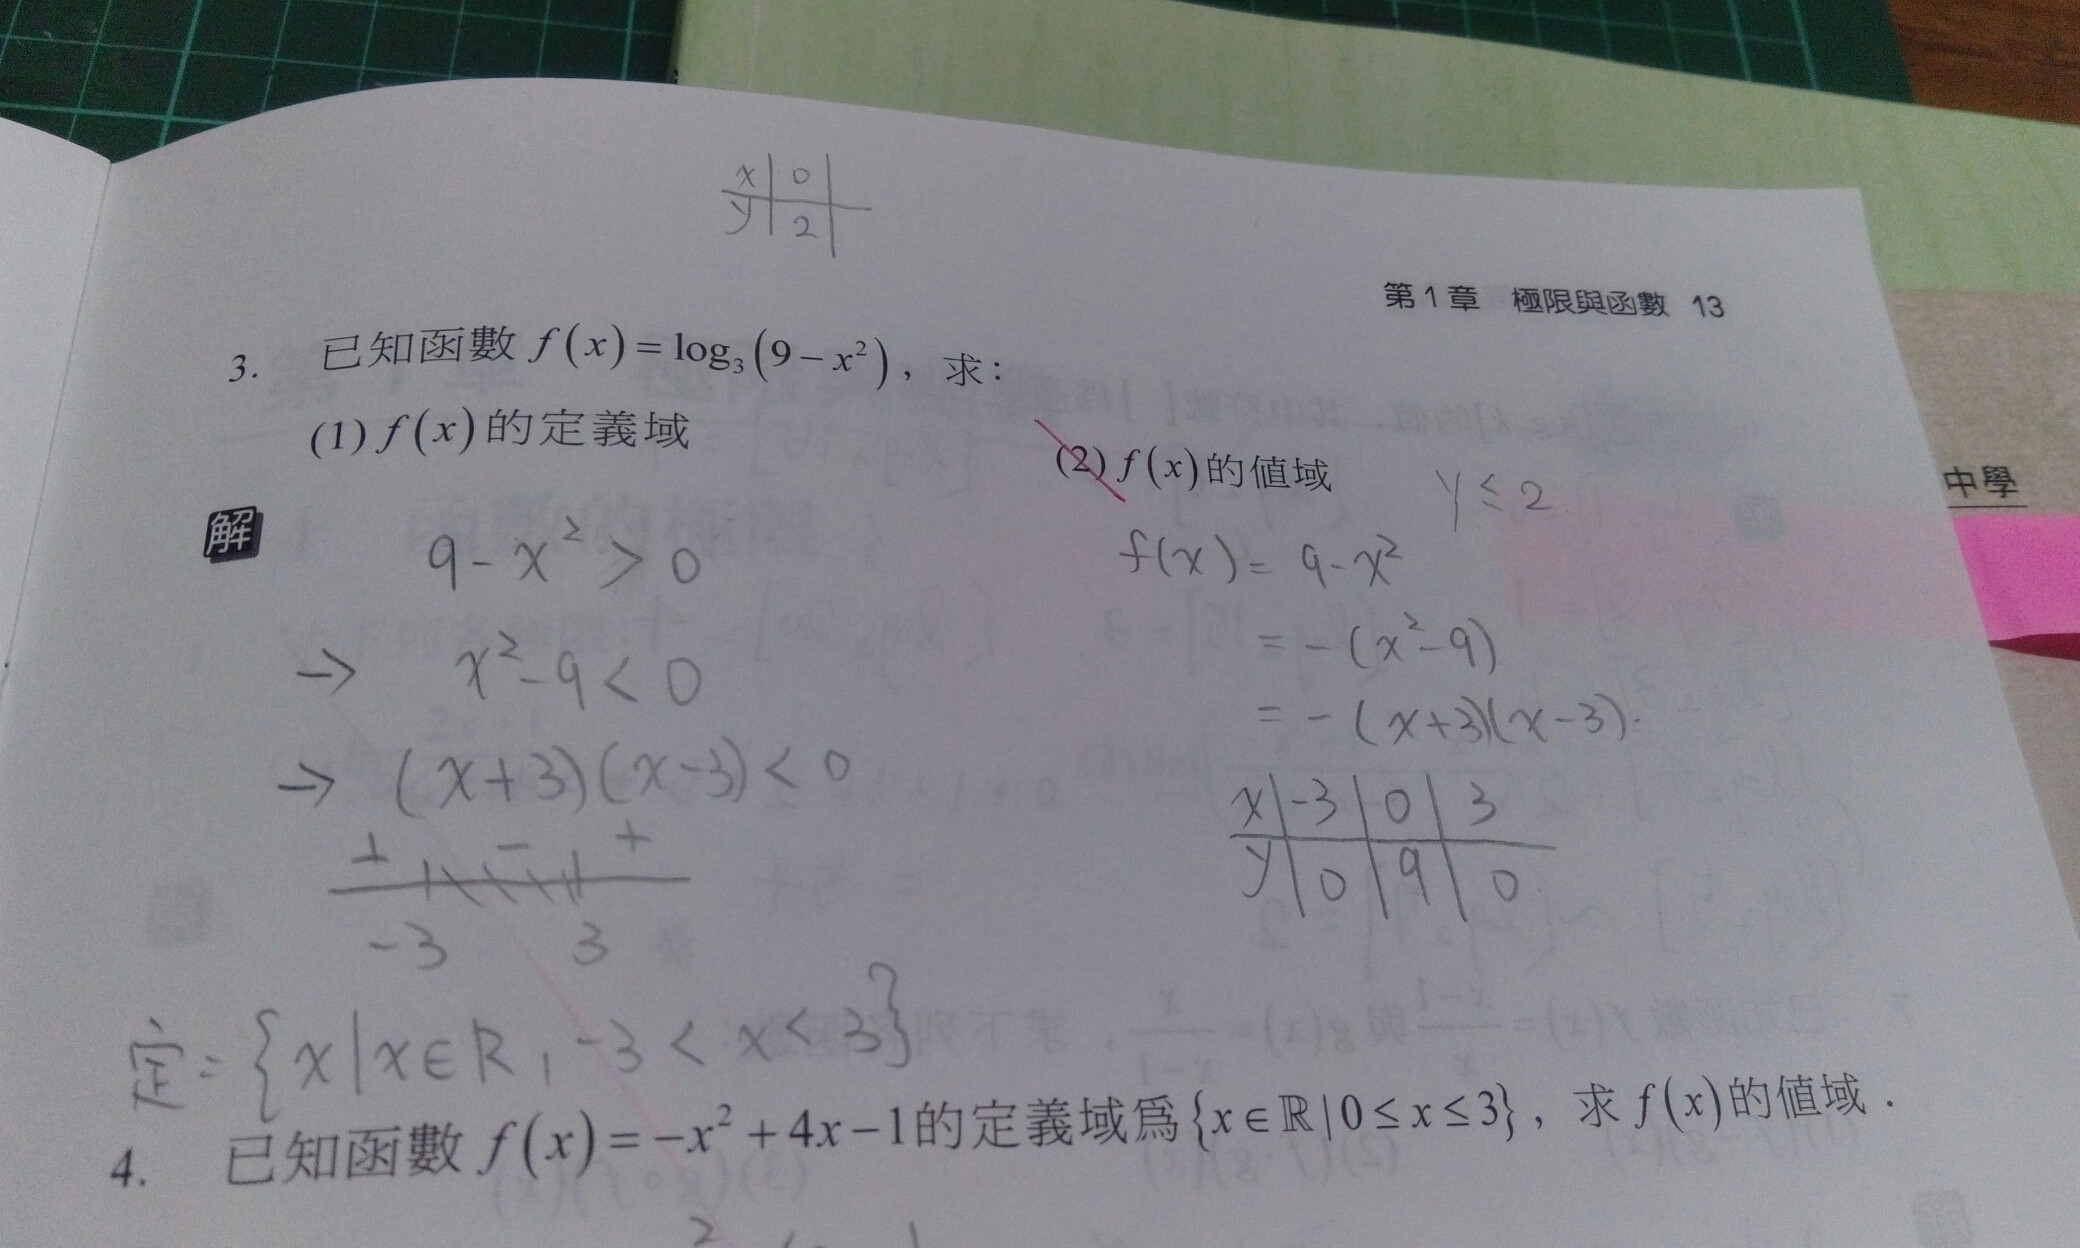 x 0
y 2
第1章 極限與函數 13
3. 已知函數 f(x)=log₃(9−x²)，求：
(1) f(x)的定義域
(2) f(x)的值域 y ≤ 2
中學
解
9-x²>0
→ x²-9<0
→ (x+3)(x-3)<0
+ - +
-3 3
定={x|x∈R, -3<x<3}
f(x)= 9-x²
= -(x²-9)
= -(x+3)(x-3).
x -3 0 3
y 0 9 0
4. 已知函數 f(x)=−x²+4x−1的定義域爲{x∈ℝ|0≤x≤3}，求 f(x)的值域．